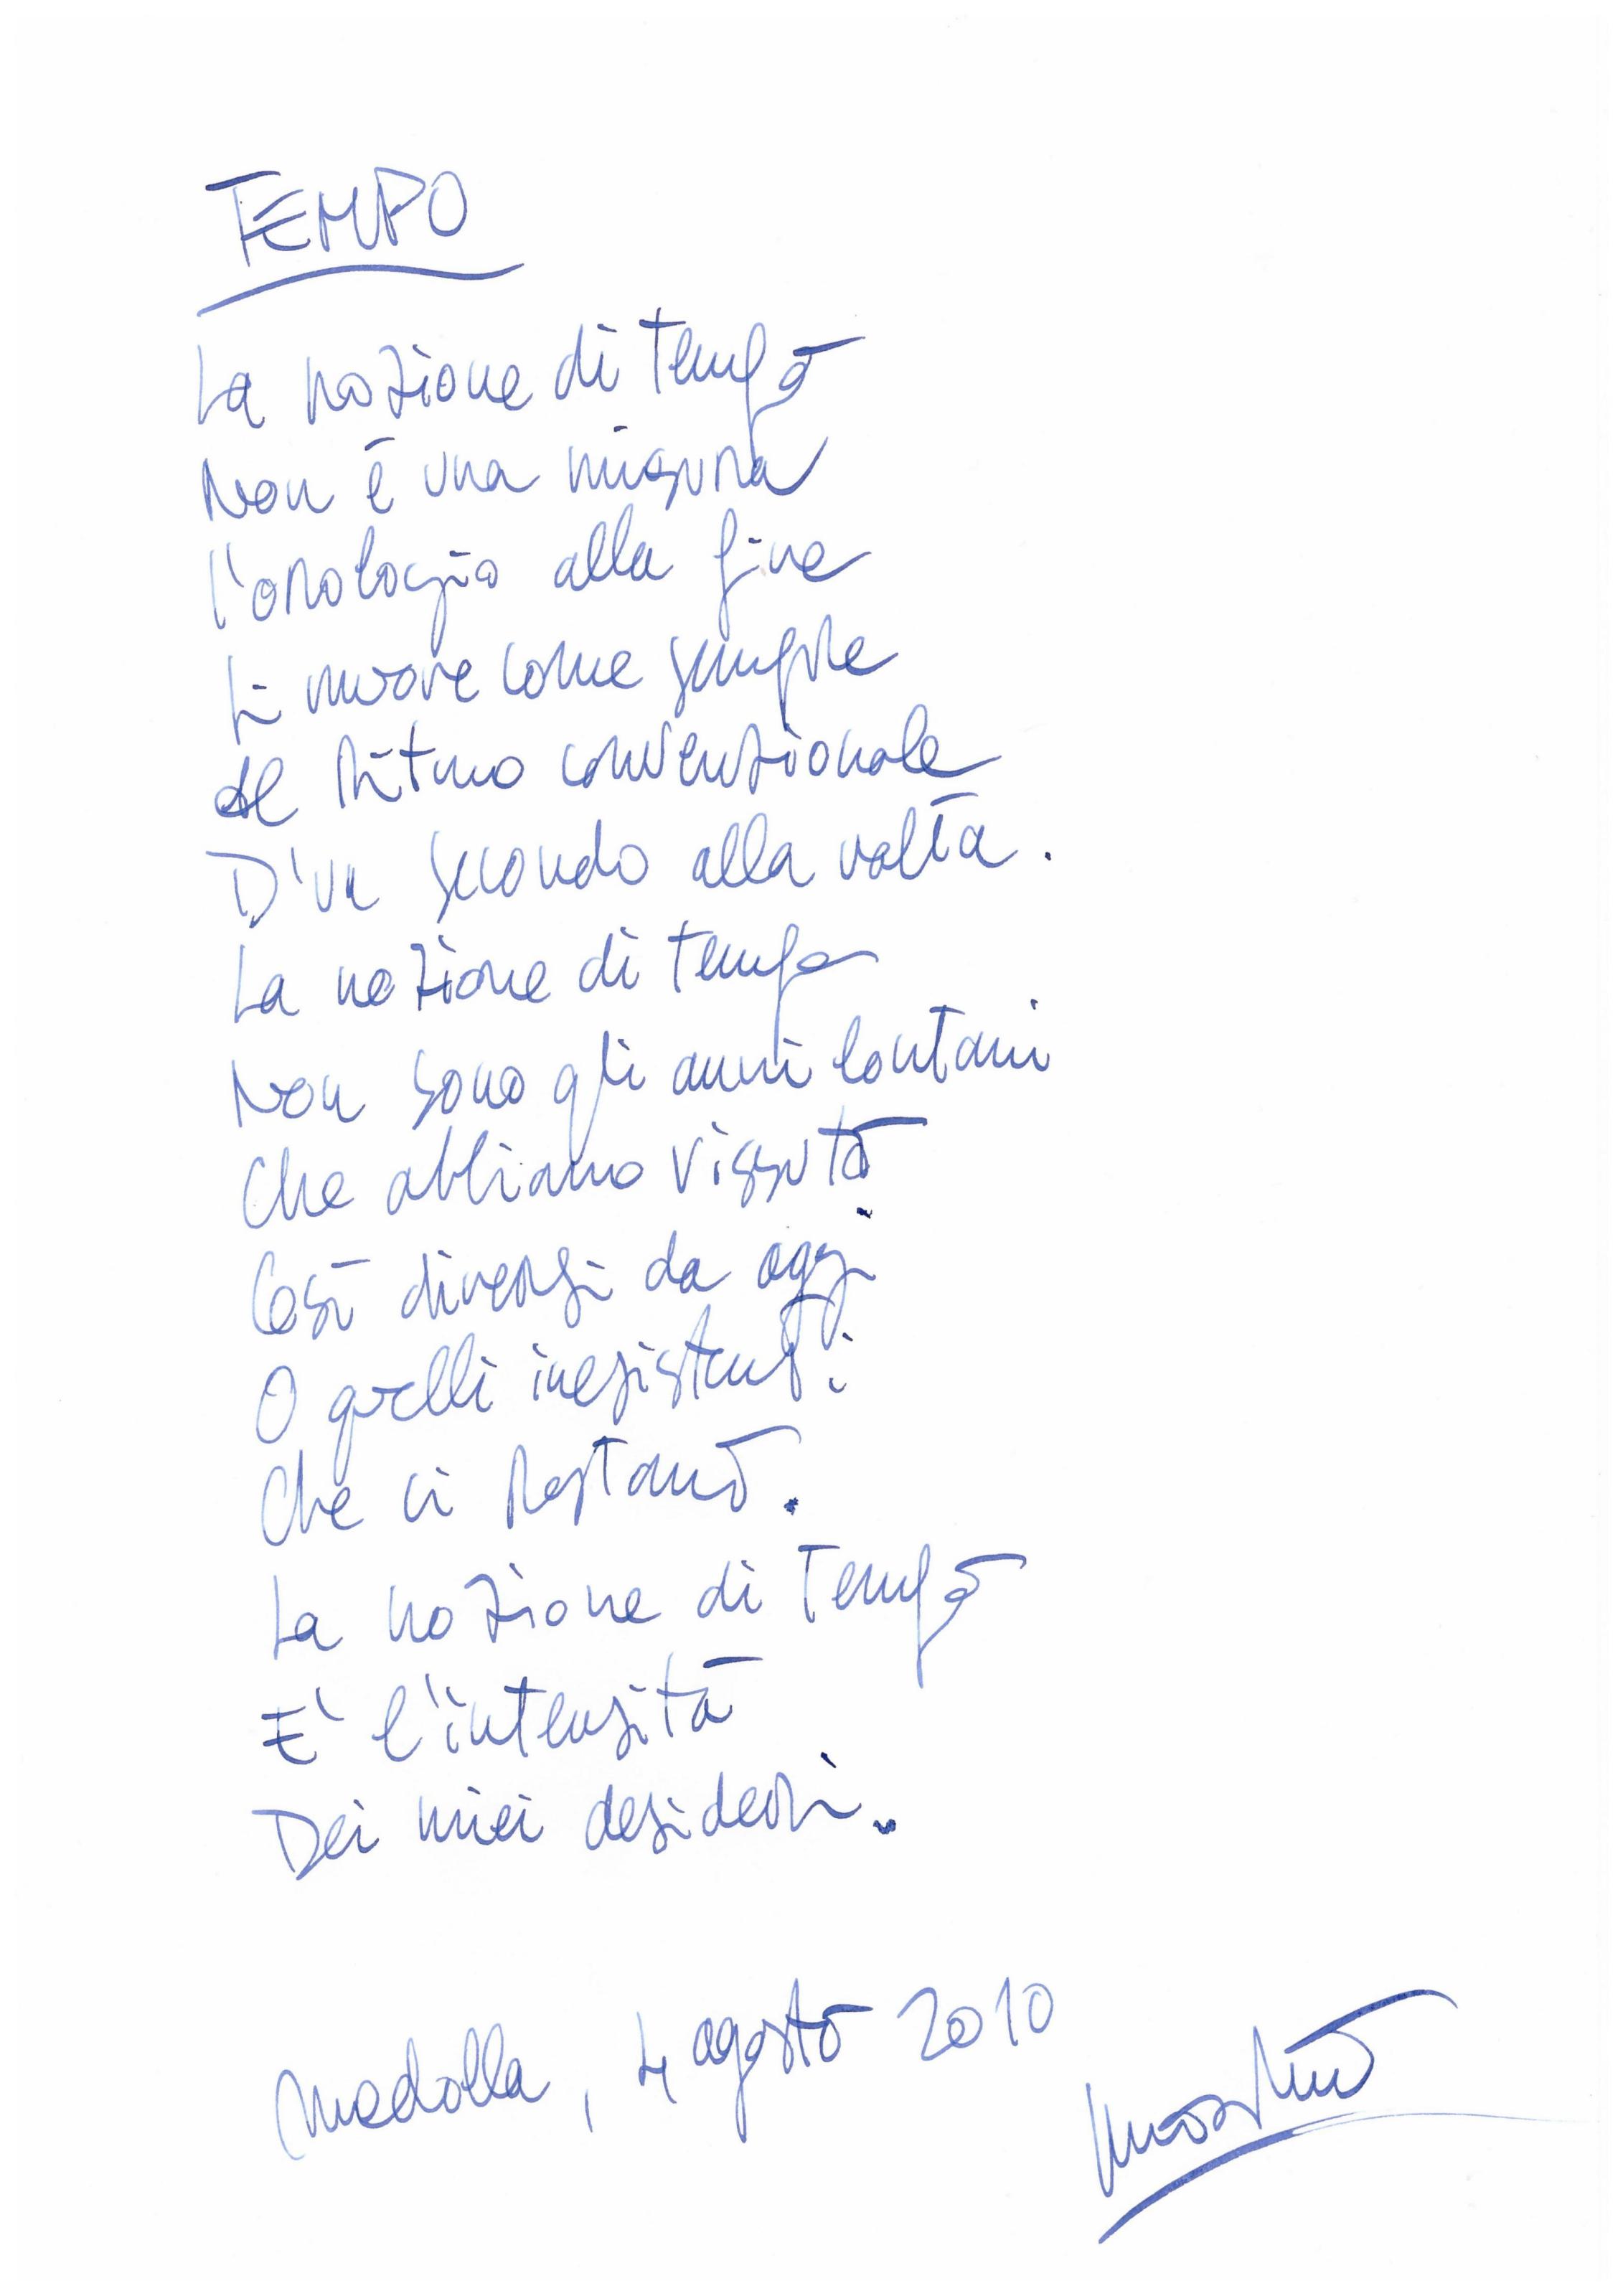 TEMPO
La nozione di tempo
Non è una misura
l'orologio alla fine
si muove come sempre
al ritmo convenzionale
D'un secondo alla volta.
La nozione di tempo
Non sono gli anni lontani
Che abbiamo vissuto
Così diversi da oggi
O quelli inesistenti
Che ci restano.
La nozione di tempo
E' l'intensità
Dei miei desideri.
Medolla, 4 agosto 2010